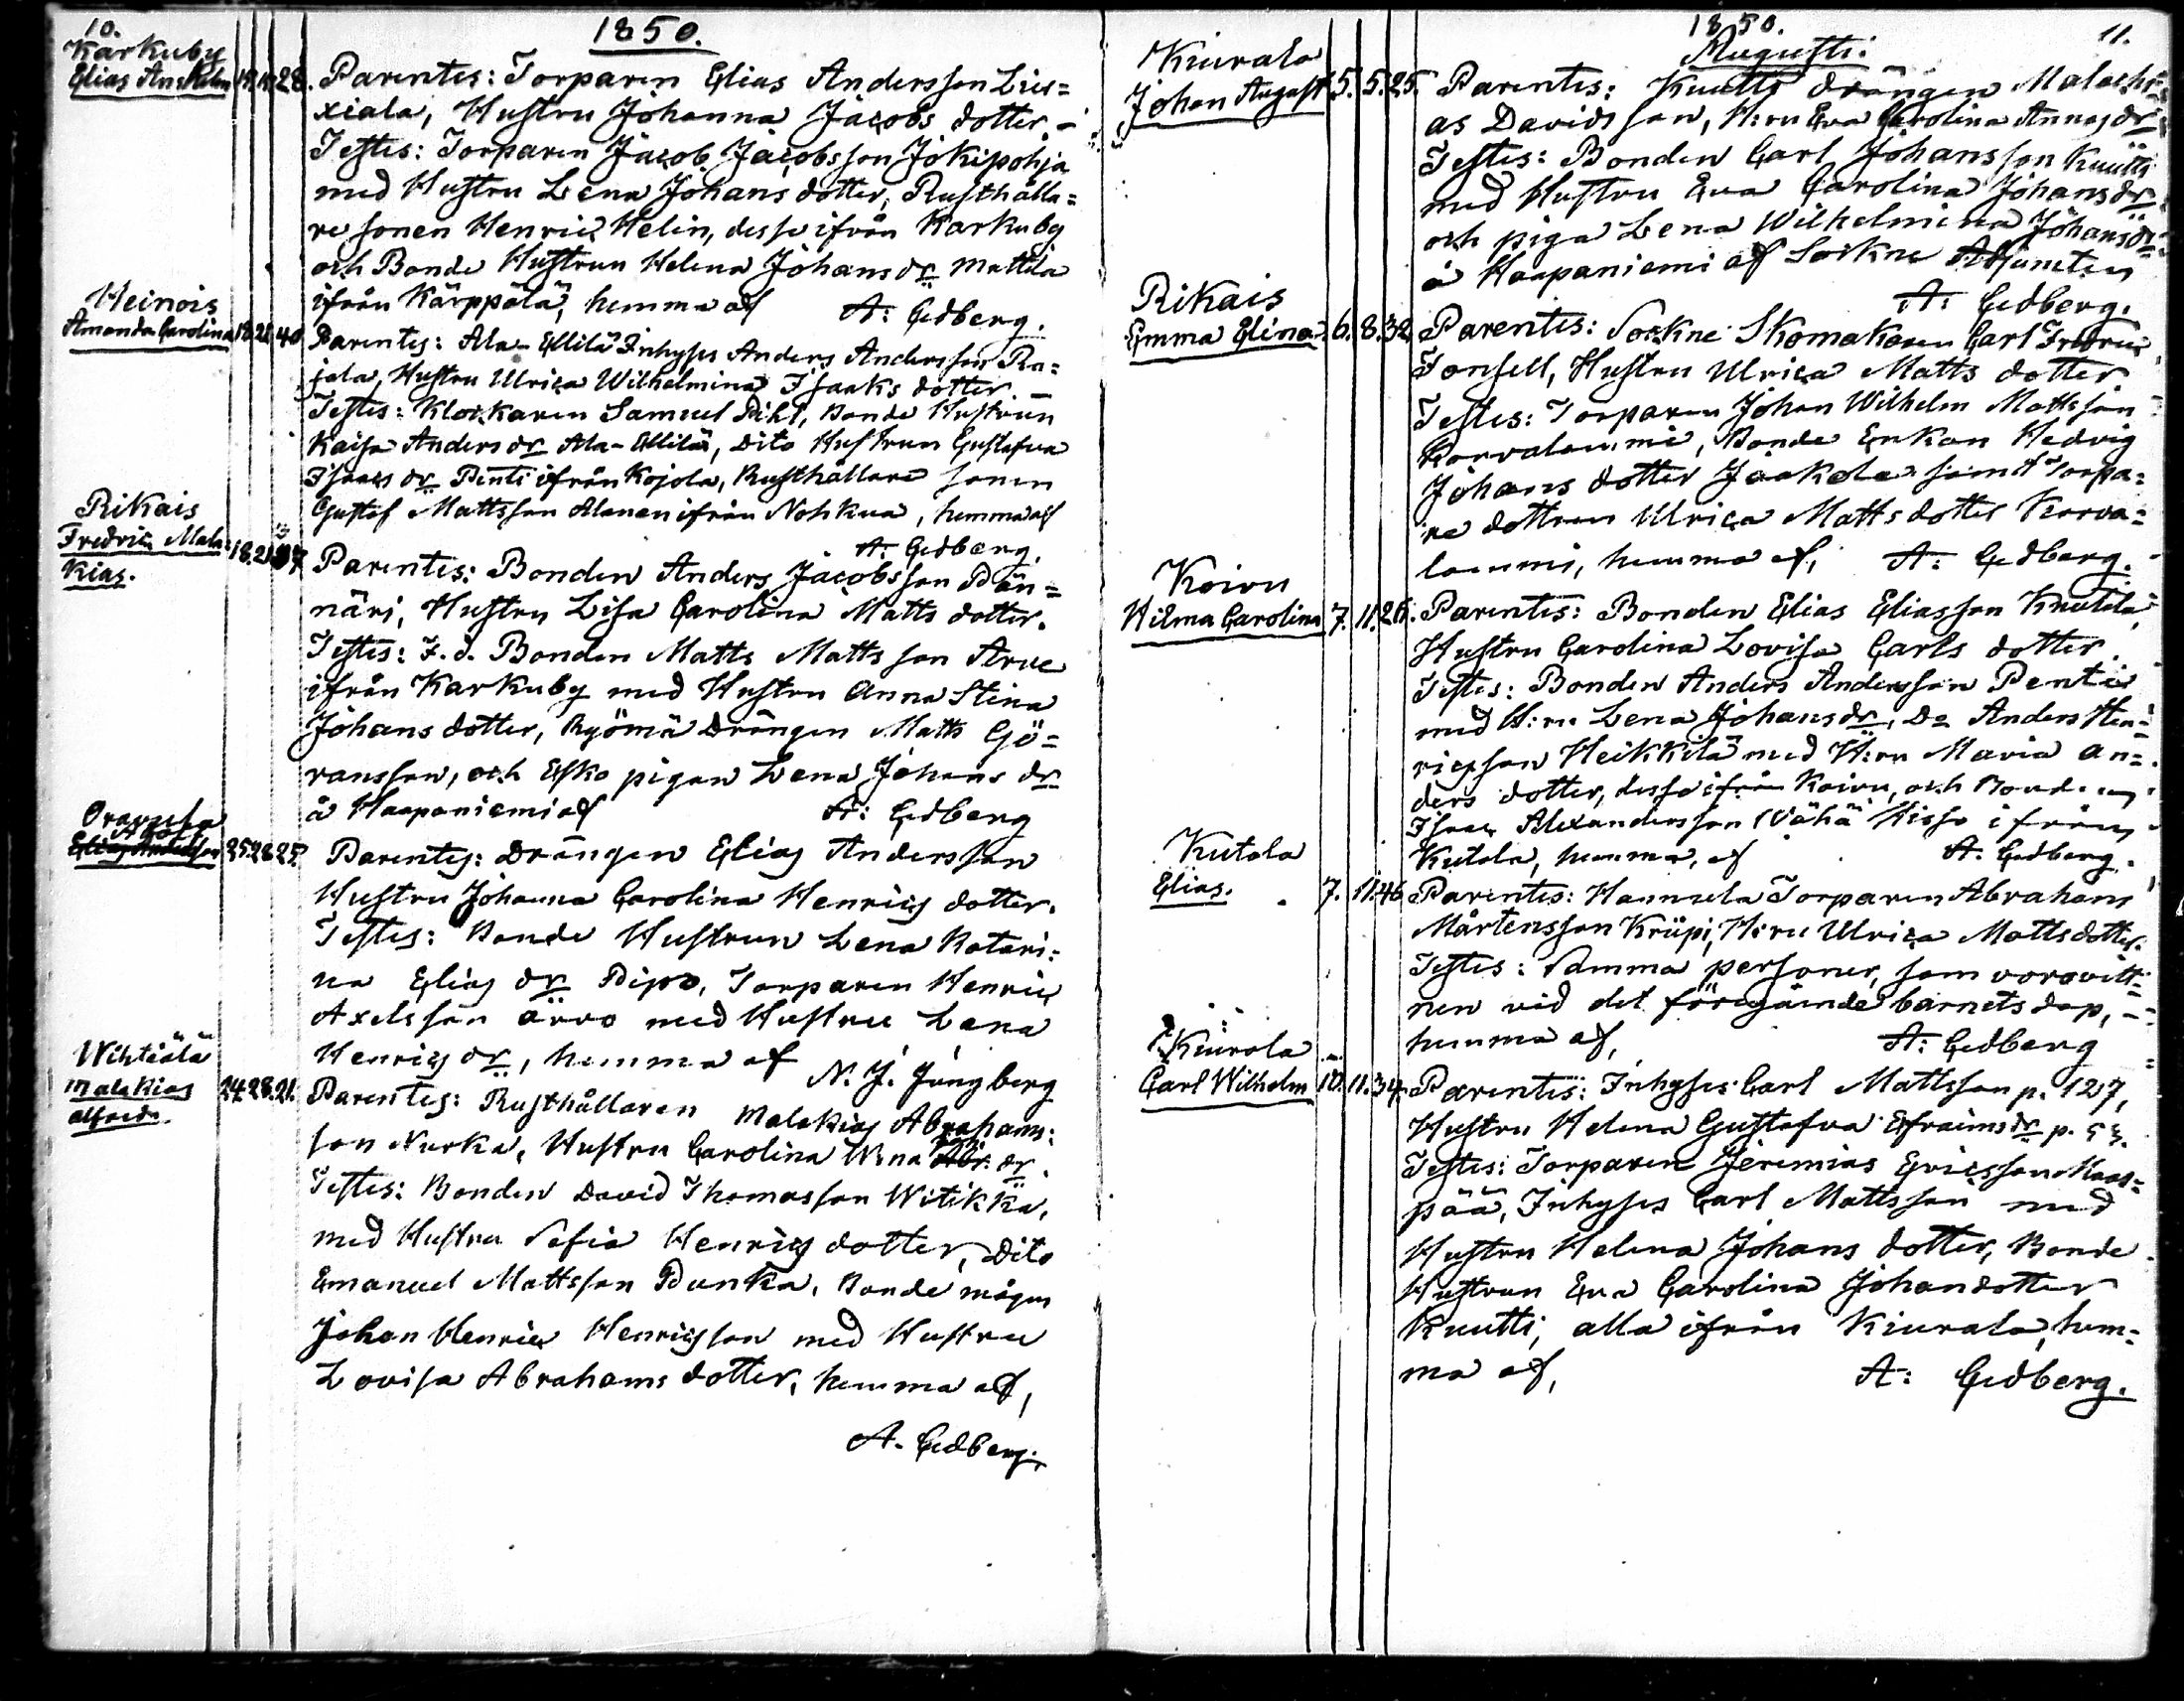 10.
1850.
Karkuby
Elias Anshelm 14. 14. 28. Parentes: Torparen Elias Andersson Lies=
xiala, Hustru Johanna Jacobs dotter. –
Testes: Torparen Jacob Jacobsson Jokipohja
med Hustru Lena Johans dotter, Rusthålla=
re sonen Henric Helin, desse ifrån Karkuby
och Bonde Hustrun Helena Johans dr Mattila
ifrån Kärppälä, hemma af A: Gedberg.
Heinois
Amanda Carolina 18. 21. 40 Parentes: Ala-Ellilä Inhyses Anders Andersson Ra=
jala, Hustru Ulrica Wilhelmina Isaaks dotter. –
Testes: Klockaren Samuel Pihl, Bonde Hustrun
Kaisa Anders dr Ala-Ellilä, Dito Hustrun Gustafva
Isaacs dr Penti ifrån Kojola, Rusthållare sonen
Gustaf Mattsson Alanen ifrån Nohkua, hemma af
A: Gedberg.
Rikais
Fredric Mala= 18. 21. 37 Parentes: Bonden Anders Jacobsson Pän=
kias.
näri, Hustru Lisa Carolina Matts dotter.
Testes: F. d. Bonden Matts Mattsson Arve
ifrån Karkuby med Hustru Anna Stina
Johans dotter, Ryömä Drängen Matts Gö=
ransson, och Esko pigan Lena Johans dr
å Haapaniemi af A: Gedberg
Oravula
Elias Andersson 25. 28. 25. Parentes: Drängen Elias Andersson
Hustru Johanna Carolina Henrics dotter.
Testes: Bonde Hustrun Lena Katari=
na Elias dr Pipo, Torparen Henric
Axelsson Arvo med Hustru Lena
Henrics dr, hemma af N. J. Jungberg
Wihtiälä
Malakias 24. 28. 21. Parentes: Rusthållaren Malakias Abrahams=
alfred.
son Nurka, Hustru Carolina W:na Abr. dr.
Testes: Bonden David Thomasson Witikka,
med Hustru Sofia Henrics dotter, Dito
Emanuel Mattsson Punka, Bonde mågen
Johan Henric Henricsson med Hustru
Lovisa Abrahams dotter, hemma af,
A. Gedberg.
1850. 11.
Augusti.
Kiurala
Johan August 5. 5. 25. Parentes: Knutts drängen Malachi=
as Davidsson, H:ru Eva Carolina Annas dr
Testes: Bonden Carl Johansson Knutti
med Hustru Eva Carolina Johans dr
och piga Lena Wilhelmina Johans dr
å Haapaniemi af Sockne Adjuncten
A: Gedberg.
Rikais
Emma Elina 6. 8. 32. Parentes: Sockne Skomakaren Carl Fredric
Tonsell, Hustru Ulrica Matts dotter.
Testes: Torparen Johan Wilhelm Mattsson
Korvalammi, Bonde Enkan Hedvig
Johans dotter Jaakola samt Torpa=
re dottren Ulrica Matts dotter Korva=
lammi, hemma af, A: Gedberg.
Koivu
Hilma Carolina 7. 11. 26. Parentes: Bonden Elias Eliasson Knutila,
Hustru Carolina Lovisa Carls dotter.
Testes: Bonden Anders Andersson Penti
med H:ru Lena Johans dr, Do Anders Hen=
ricsson Heikkilä med H:ru Maria An=
ders dotter, desse ifrån Koivu, och Bonden
Isaac Alexandersson Wähä Hissa ifrån
Kutala, hemma, af A. Gedberg.
Kutala
Elias. 7. 11. 46. Parentes: Hannula Torparen Abraham
Mårtensson Kriipi, H:ru Ulrica Matts dotter.
Testes: Samma personer, som voro vitt=
nen vid det föregående barnets dop, –
hemma af, A: Gedberg
Kiurala
Carl Wilhelm 10. 11. 34. Parentes: Inhyses Carl Mattsson p. 127,
Hustru Helena Gustafva Efraims dr p. 53.
Testes: Torparen Jeremias Ericsson Maas=
pää, Inhyses Carl Mattsson med
Hustru Helena Johans dotter, Bonde
Hustrun Eva Carolina Johandotter
Knutti, alla ifrån Kiurala, hem=
ma af, A: Gedberg.